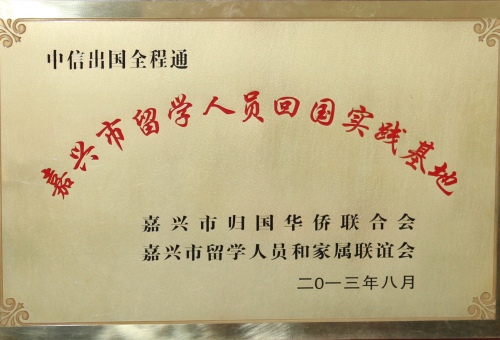 中信出国全程通
嘉兴市留学人员回国实践基地
嘉兴市归国华侨联合会
嘉兴市留学人员和家属联谊会
二0一三年八月